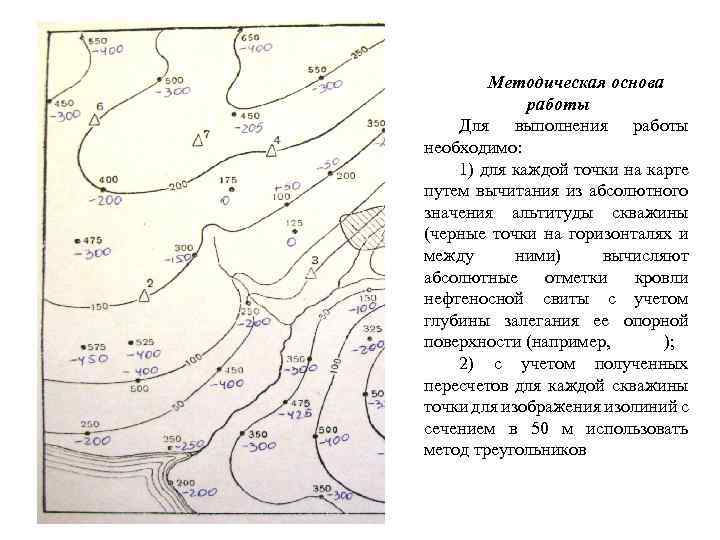 550
-400
650
-400
250
500
-300
550
-300
450
-300
6
450
-205
350
7
4
-300
400
-200
200
175
0
+50
-50
200
100
125
0
475
-300
300
-150
3
2
150
250
-200
50
130
-100
325
575
-450
525
-400
-400
500
100
450
-400
350
-300
400
-425
50
250
-200
-250
350
-300
500
-400
200
-200
350
-300
Методическая основа
работы
Для выполнения работы
необходимо:
1) для каждой точки на карте
путем вычитания из абсолютного
значения альтитуды скважины
(черные точки на горизонталях и
между ними) вычисляют
абсолютные отметки кровли
нефтеносной свиты с учетом
глубины залегания ее опорной
поверхности (например, );
2) с учетом полученных
пересчетов для каждой скважины
точки для изображения изолиний с
сечением в 50 м использовать
метод треугольников